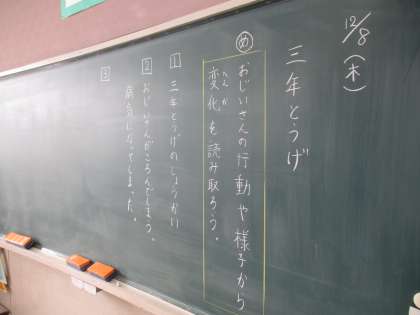 12/8(木)
三年とうげ
め
おじいさんの行動や様子から
変化を読み取ろう。
へんか
1 三年とうげのしょうかい
2 おじいさんがころんでしまう。
病気になってしまった。
3